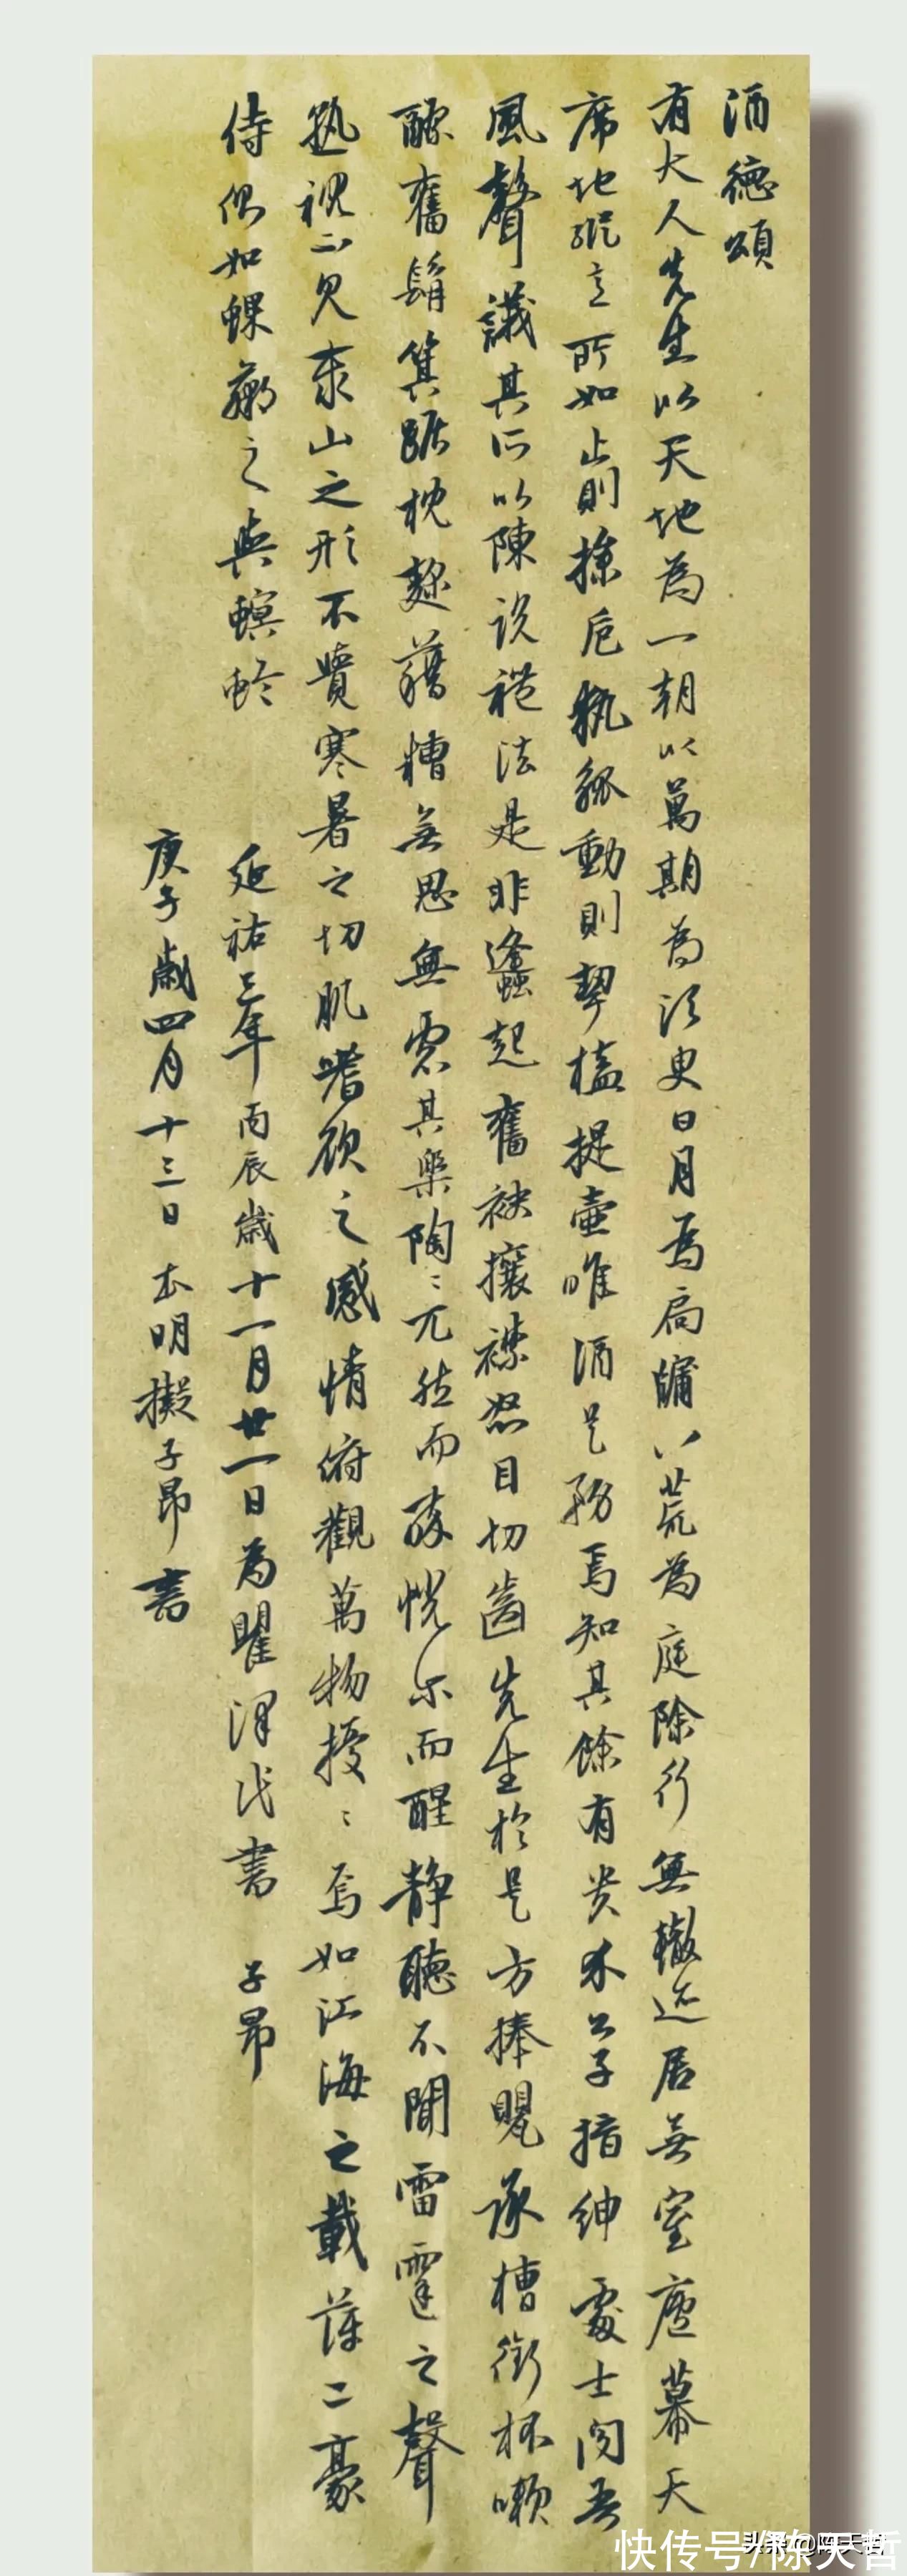 酒德頌
有大人先生以天地為一朝以萬期為須臾日月為扃牖八荒為庭除行無轍迹居無室廬幕天
席地縱意所如止則操卮執觚動則挈榼提壺唯酒是務焉知其餘有貴介公子搢紳處士聞吾
風聲議其所以陳說禮法是非鋒起奮袂攘襟怒目切齒先生於是方捧甖承槽銜杯漱
醪奮髯箕踞枕麴藉糟無思無慮其樂陶〻兀然而醉恍尔而醒静聽不聞雷霆之聲
孰視不見泰山之形不覺寒暑之切肌嗜欲之感情俯觀萬物擾〻焉如江海之載萍二豪
侍側如蜾蠃之與螟蛉 延祐三年丙辰歲十一月廿一日為瞿澤民書 子昂
庚子歲四月十三日 本明擬子昂書
快传号/陈天哲
头条@陈天哲